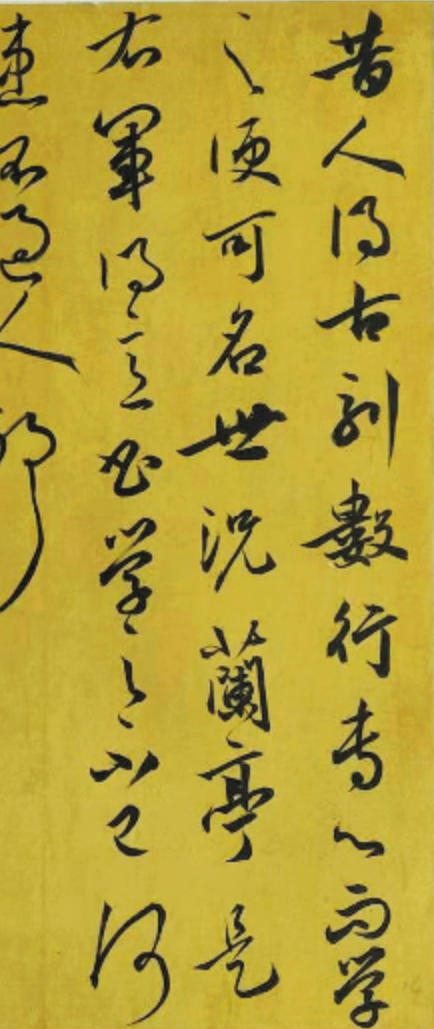 昔人得古刻數行专心而学
之便可名世况蘭亭是
右軍得意书学之不已何
患不過人耶